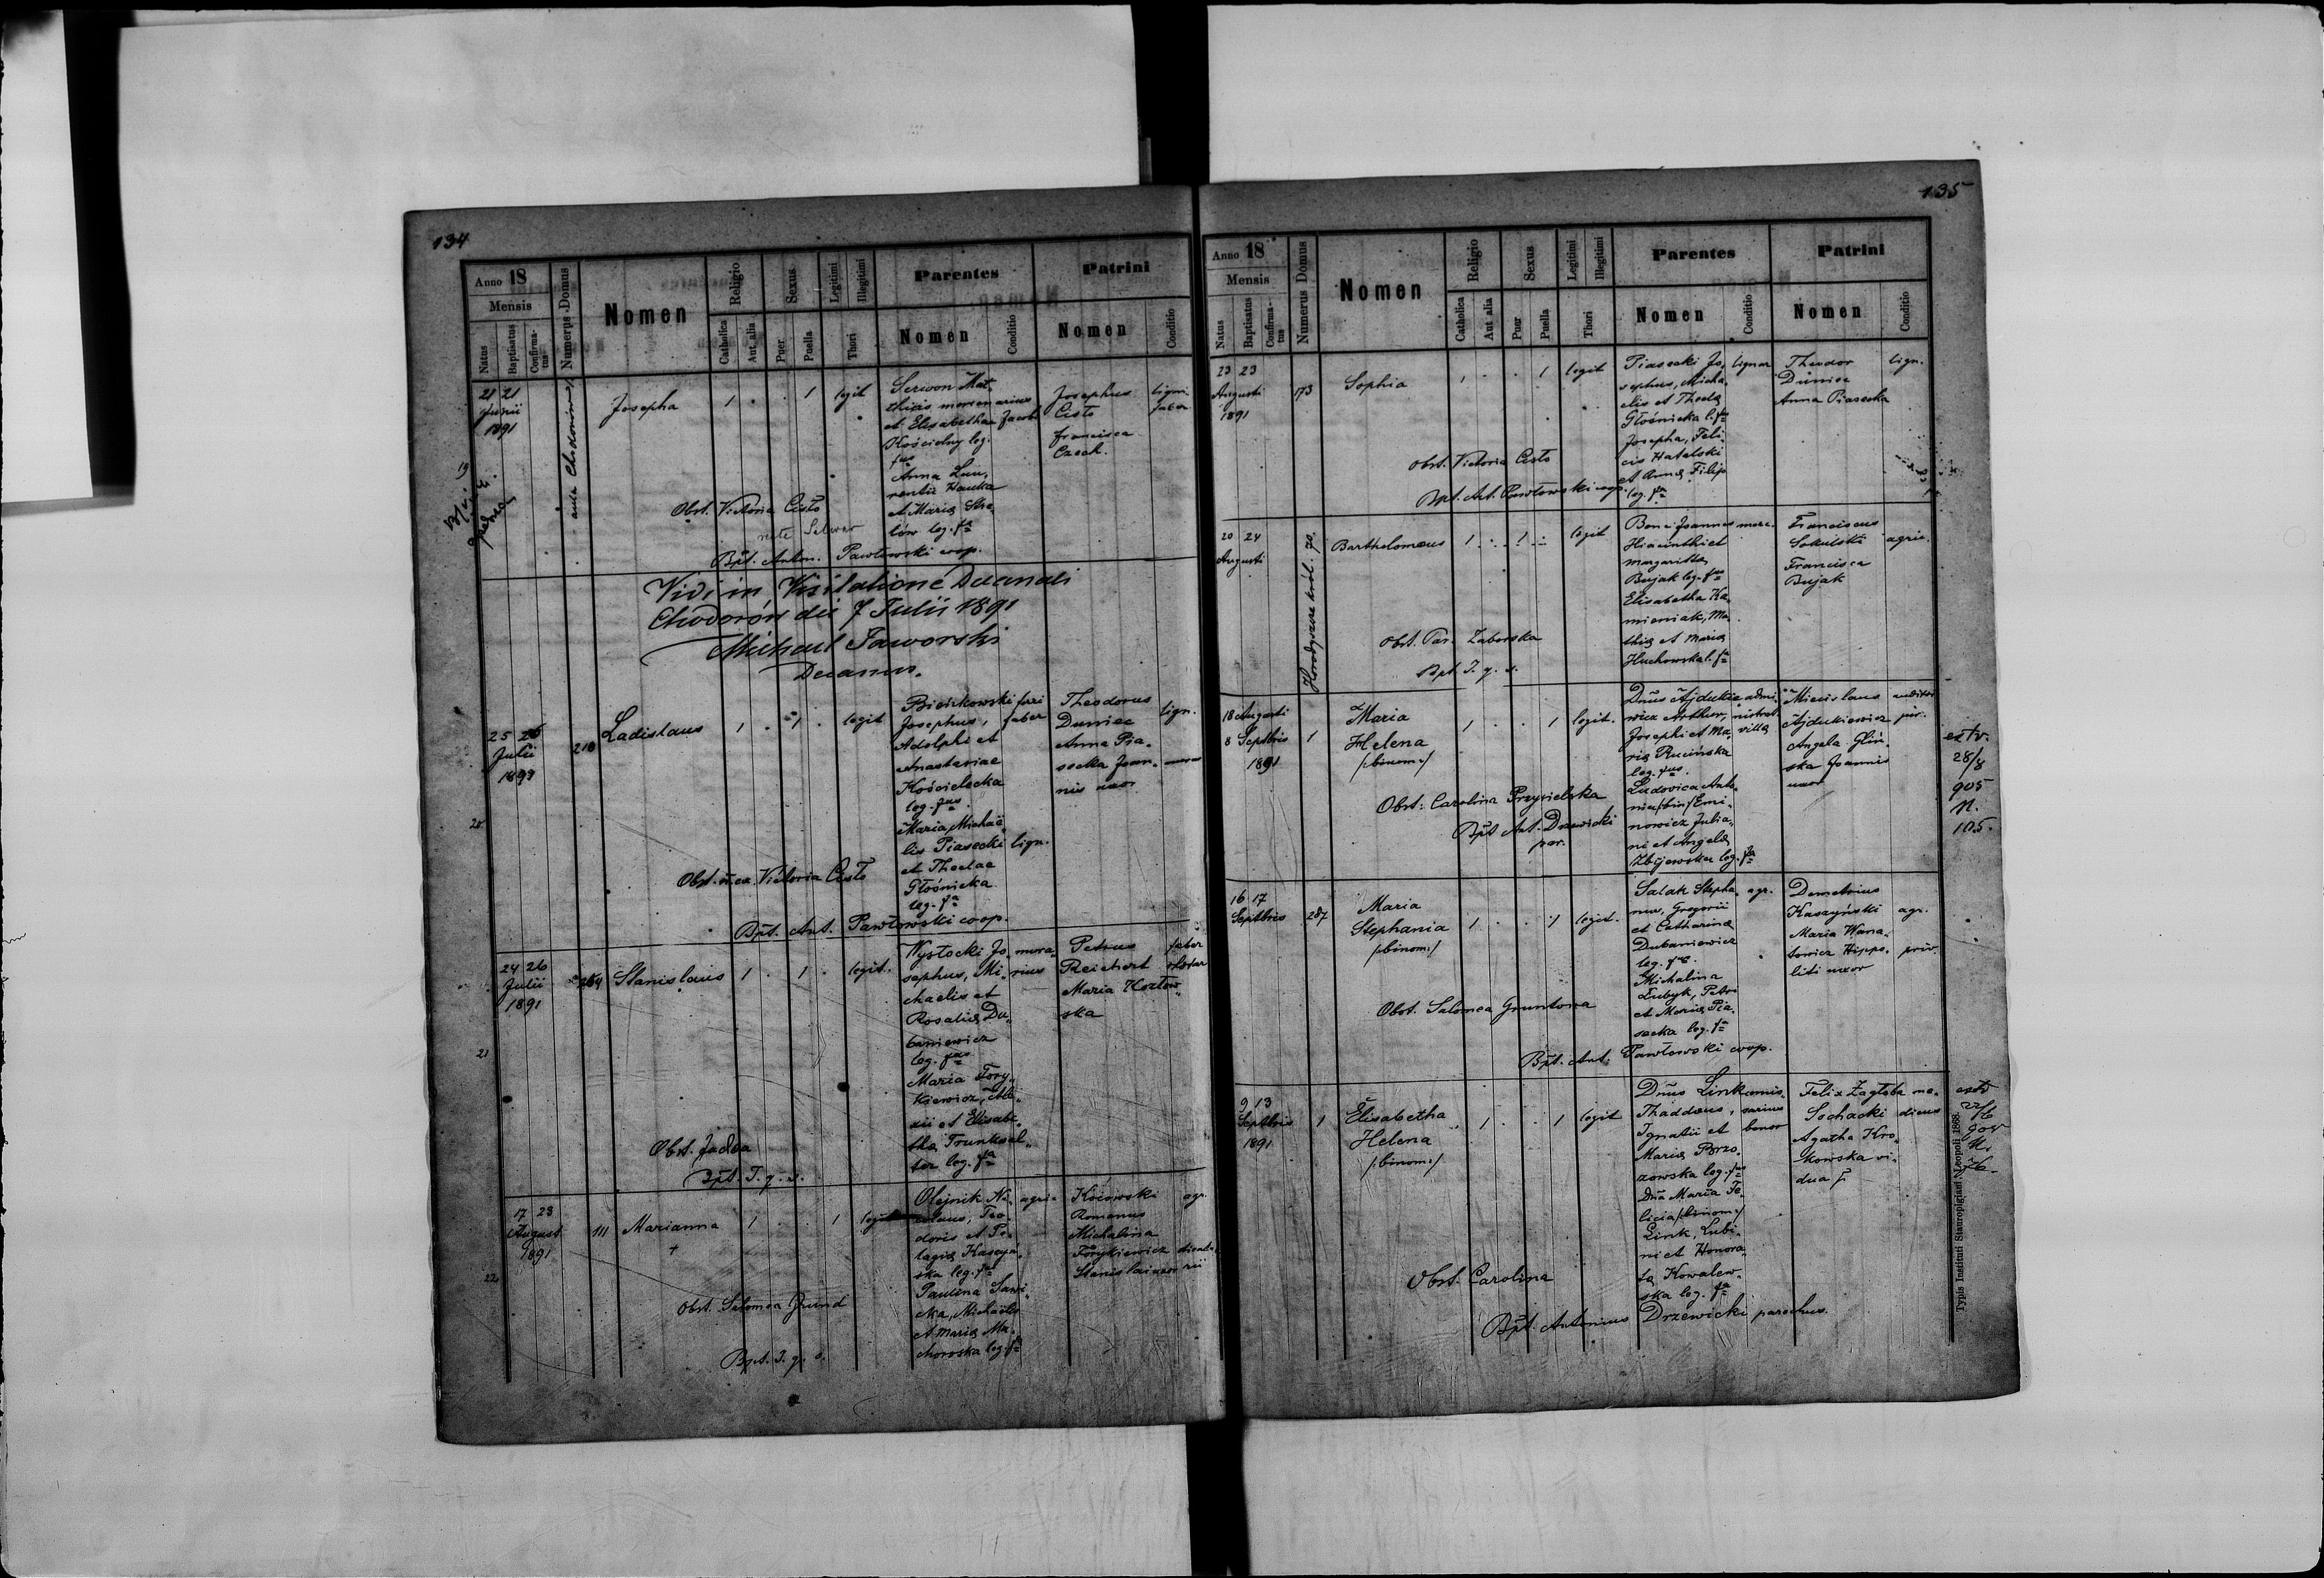 134
Anno 18
Mensis
Natus
Baptisatus
Confirmatus
Numerus Domus
Nomen
Religio
Catholica
Aut alia
Sexus
Puer
Puella
Legitimi
Illegitimi
Thori
Parentes
Nomen
Conditio
Patrini
Nomen
Conditio
19
21 21
Junii
1891
Josepha
1 . . 1 legit
Serwon Mat-
thias mercenarius
et Elisabethae Jacobi
Kościelny leg.
fus
Anna Lau-
rentii Hawka
et Maria Stre-
lów leg. fa
Josephus
Cisło
Francisca
Czech.
lign.
faber
Obst. Victoria Cisło
Bpt. Anton. Pawłowski coop.
Vidi in Visitatione Decanali
Chodorów die 7 Julii 1891
Michael Jaworski
Decanus.
20
25 26
Julii
1891
210
Ladislaus
1 . 1 . legit
Bieńkowski ferri
Josephus, faber
Adolphi et
Anastasiae
Kościelecka
leg. fus.
Maria, Michaë-
lis Piasecki lign.
et Theclae
Głośnicka
leg. fa
Theodorus
Duniec
Anna Pia-
secka Joan-
nis uxor
lign.
Obst. Victoria Cisło
Bpt. Ant. Pawłowski coop.
21
24 26
Julii
1891
264
Stanislaus
1 . 1 . legit.
Wysłocki Jo- mura-
sephus, Mi- rius
chaelis et
Rosalia Du-
baniewicz
leg. fus
Maria Fory-
kiewicz, Ale-
xii et Elisabe-
tha Trunksal-
ter leg. fa
Petrus
Reichert
Maria Kozłow-
ska
faber
Obst. Jadwa
Bpt. I. q. s.
22
17 23
August
1891
111
Marianna
1 . . 1 legit
Olejnik Ni- agri-
colaus, Teo-
doris et Pe-
lagia Kaszyń-
ska leg. fus
Paulina Sawi-
cka, Michaelis
et Maria Ma-
chowska leg. fa
Kosowski
Romanus
Michalina
Forykiewicz
Stanislai uxor
agr.
Obst. Salomea Grund
Bpt. I. q. s.
135
Anno 18
Mensis
Natus
Baptisatus
Confirmatus
Numerus Domus
Nomen
Religio
Catholica
Aut alia
Sexus
Puer
Puella
Legitimi
Illegitimi
Thori
Parentes
Nomen
Conditio
Patrini
Nomen
Conditio
23 23
Augusti
1891
173
Sophia
1 . . 1 legit
Piasecki Jo- lignar
sephus, Micha-
elis et Thecla
Głośnicka l. fus
Josepha, Feli-
cis Hatalski
et Anna Filip
leg. fa
Theodor
Duniec
Anna Piasecka
lign.
Obst. Victoria Cisło
Bpt. Ant. Pawłowski coop.
20 24
Augusti
Horodyszcze król. 70.
Bartholomaeus
1 . 1 . legit
Bene Joannes merc.
Hiacinthi et
Margaritta
Bujak leg. fus
Elisabetha Ka-
mieniak, Ma-
thia et Maria
Huchowska l. fa
Franciscus
Sokulski
Francisca
Bujak
agric.
Obst. Par. Zaborska
Bpt I. q. s.
18 Augusti
8 Septbris
1891
1
Maria
Helena
/:binom:/
1 . . 1 legit.
Dnus Ajdukie- admi-
wicz Arthur, nistrat.
Josephi et Ma- villa
ria Rucińska
leg. fus.
Ludovica Anto-
nia /:bin:/ Emi-
nowicz Julia-
ni et Angela
Zbijewska leg. fa
Miecislaus
Ajdukiewicz
Angela Gliń-
ska Joannis
uxor
auditor
jur.
Obst: Carolina Przysielska
Bpt Ant. Drzewicki
par.
extr.
28/8
905
N.
105.
16 17
Septbris
287
Maria
Stephania
/:binom:/
1 . . 1 legit.
Salak Stepha- agr.
nus, Gregorii
et Catharina
Dubaniewicz
leg. fus.
Michalina
Łubyk, Petri
et Maria Pia-
secka leg. fa
Demetrius
Kaszyński
Maria Wana-
towicz Hippo-
liti uxor
agr.
priv.
Obst. Salomea Gruntowa
Bpt. Ant. Pawłowski coop.
9 13
Septbris
1891
1
Elisabetha
Helena
/:binom:/
1 . . 1 legit
Dnus Link comis-
Thaddaeus, sarius
Ignatii et bonor
Maria Brzo-
zowska leg. fus
Dna Maria Fe-
licia /:binom:/
Link, Lubi-
ni et Honora-
ta Kowalew-
ska leg. fa
Felix Zagłoba
Sochacki
Agatha Kro-
kowska vi-
dua
me-
dicus
Obst. Carolina
Bpt. Antonius Drzewicki parochus.
Typis Instituti Stauropigiani Leopoli 1888.